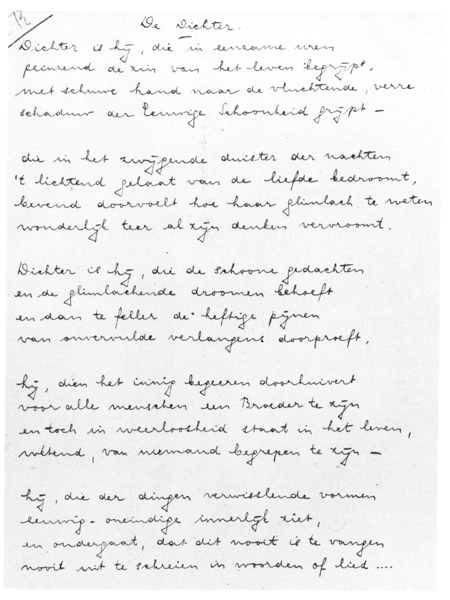 12
De Dichter.
Dichter is hij, die in eenzame uren
peinzend de zin van het leven begrijpt,
met schuwe hand naar de vluchtende, verre
schaduw der Eeuwige Schoonheid grijpt –
die in het zwijgende duister der nachten
't lichtend gelaat van de liefde bedroomt,
bevend doorvoelt hoe haar glimlach te weten
wonderlijk teer al zijn denken vervroomt.
Dichter is hij, die de schoone gedachten
en de glimlachende droomen behoeft
en dan te feller de heftige pijnen
van onvervulde verlangens doorproeft,
hij, dien het innig begeeren doorhuivert
voor alle menschen een Broeder te zijn
en toch in weerloosheid staat in het leven,
wetend, van niemand begrepen te zijn –
hij, die der dingen verwisslende vormen
eeuwig-oneindige innerlijk ziet,
en ondergaat, dat dit nooit is te vangen
nooit uit te schreien in woorden of lied ....